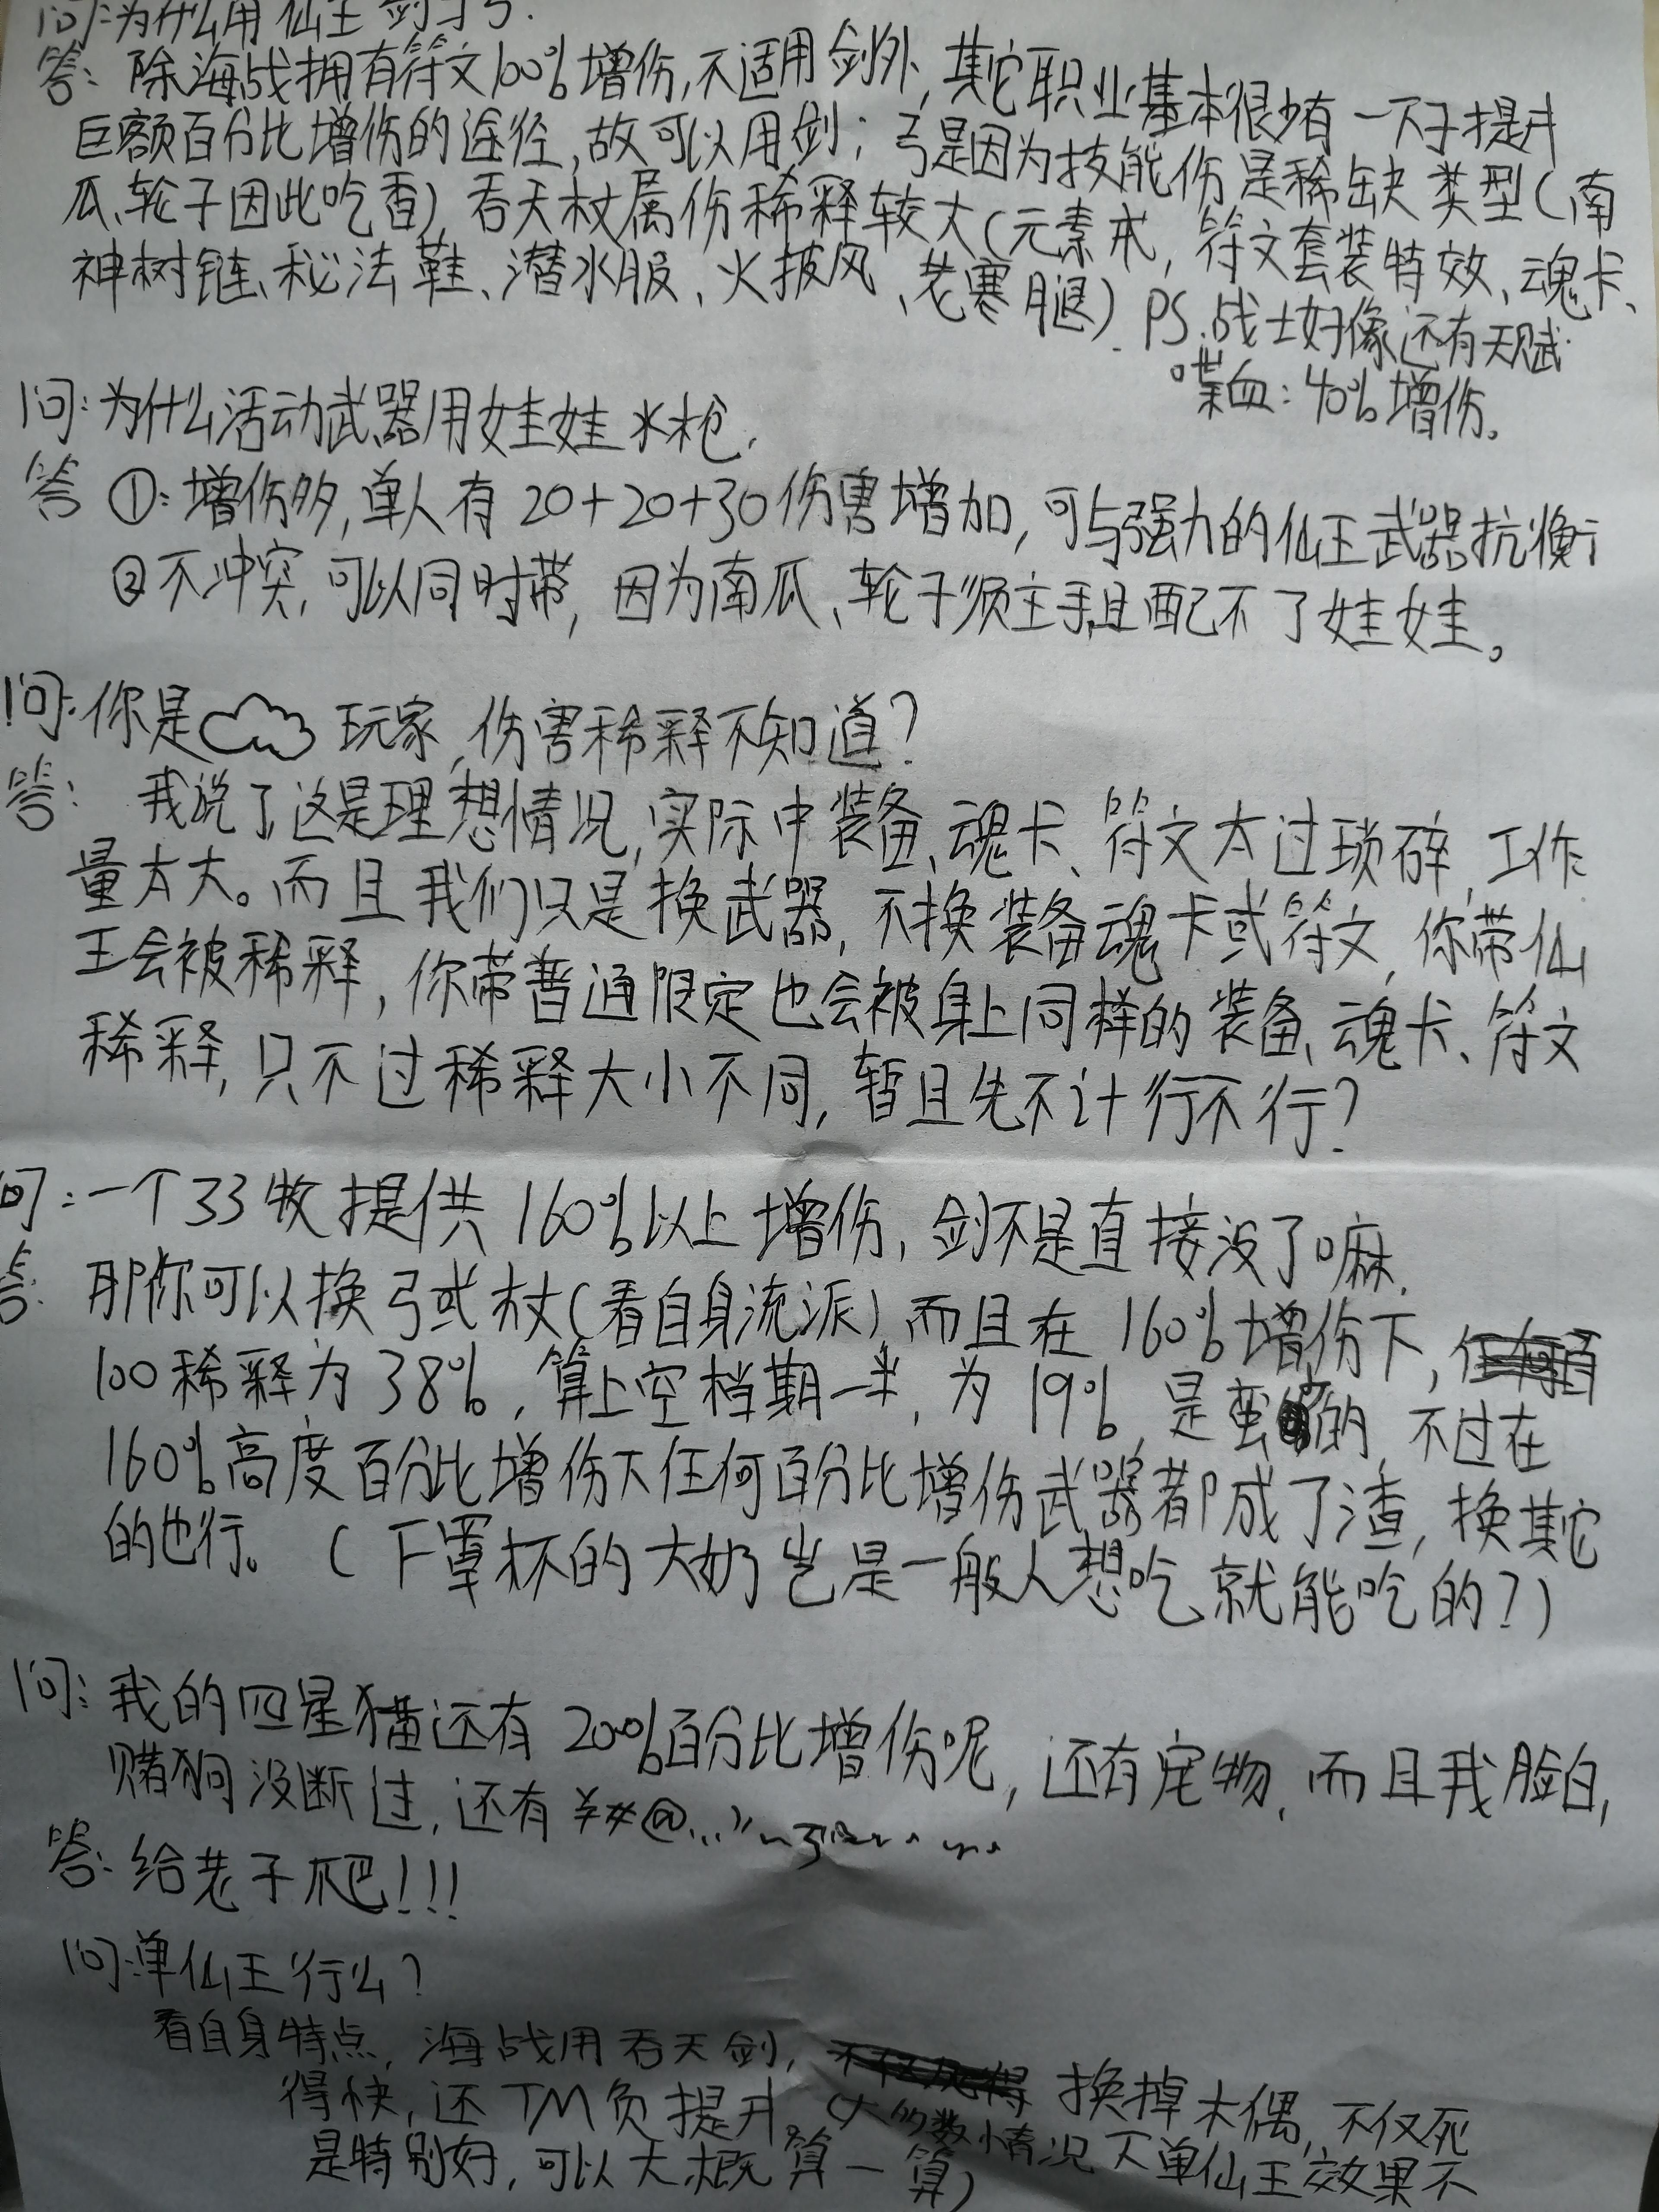 问:为什么用仙王剑弓.
答:除海战拥有符文100%增伤,不适用剑外,其它职业基本很少有一下子提升
巨额百分比增伤的途径,故可以用剑;弓是因为技能伤是稀缺类型(南
瓜、轮子因此吃香),吞天杖属伤稀释较大(元素戒,符文套装特效、魂卡、
神树链、秘法鞋、潜水服、火披风、老寒腿).PS.战士好像还有天赋
喋血:40%增伤。
问:为什么活动武器用娃娃水枪.
答①:增伤多,单人有20+20+30伤害增加,可与强力的仙王武器抗衡
②不冲突,可以同时带,因为南瓜、轮子须主手且配不了娃娃。
问:你是 玩家,伤害稀释不知道?
答:我说了这是理想情况,实际中装备、魂卡、符文太过琐碎,工作
量太大。而且我们只是换武器,不换装备魂卡或符文,你带仙
王会被稀释,你带普通限定也会被身上同样的装备、魂卡、符文
稀释,只不过稀释大小不同,暂且先不计行不行?
问:一个33牧提供160%以上增伤,剑不是直接没了嘛.
答:那你可以换弓或杖(看自身流派),而且在160%增伤下,
100稀释为38%,算上空档期一半,为19%,是蛮 的,不过在
160%高度百分比增伤下任何百分比增伤武器都成了渣,换其它
的也行。(F罩杯的大奶岂是一般人想吃就能吃的?)
问:我的四星猫还有200%百分比增伤呢,还有宠物,而且我脸白,
赌狗没断过,还有¥#@...
答:给老子爬!!!
问:单仙王行么?
看自身特点,海战用吞天剑,换掉木偶,不仅死
得快,还TM负提升.(大的数情况下单仙王效果不
是特别好,可以大概算一算)